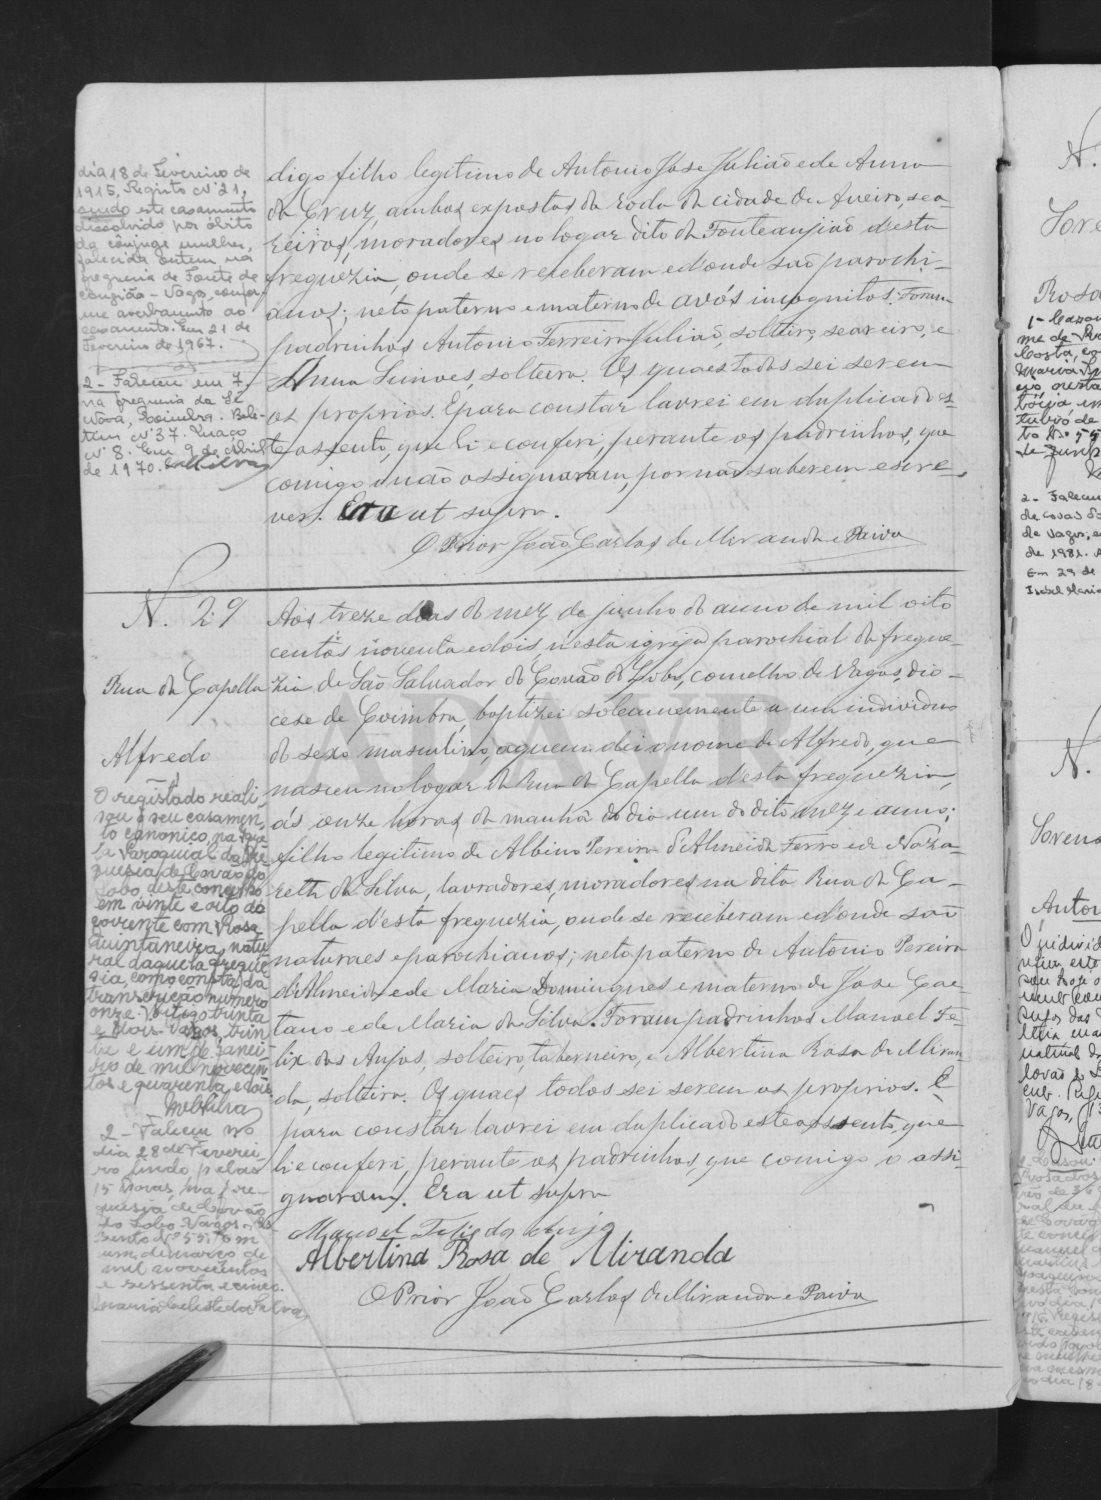 dia 18 de Fevereiro de
1915, Registo Nº 21,
sendo este casamento
dissolvido por óbito
da cônjuge mulher,
falecida ontem na
freguesia de Fonte de
Angião - Vagos, confor
me averbamento ao
casamento. Em 21 de
Fevereiro de 1967.
2 - Faleceu em 7,
na freguesia da Sé
Nova, Coimbra. Bole-
tim Nº 37. Maço
Nº 8. Em 9 de Abril
de 1970.
digo filho legitimo de Antonio José Julião e de Anna
da Cruz, ambos expostos da roda da cidade de Aveiro, sea
reiros, moradores no logar dito da Fonteanjião d'esta
freguezia, onde se receberam e d'onde são parochi-
anos; neto paterno e materno de avós incognitos. Foram
padrinhos Antonio Ferreira Julião, solteiro, seareiro, e
Anna Simões, solteira. Os quaes todos sei serem
os proprios. E para constar lavrei em duplicado es-
te assento, que li e conferi, perante os padrinhos, que
comigo não assignaram, por não saberem escre-
ver. Era ut supra.
O Prior João Carlos de Miranda e Paiva
N. 29
Rua da Capella
Alfredo
Aos treze dias do mez de junho do anno de mil oito
centos noventa e dois, n'esta igreja parochial da fregue-
zia de São Salvador do Covão do Lobo, concelho de Vagos, dio-
cese de Coimbra, baptizei solemnemente a um individuo
do sexo masculino, a quem dei o nome de Alfredo, que
nasceu no logar da Rua da Capella d'esta freguezia,
ás onze horas da manhã do dia um do dito mez e anno;
filho legitimo de Albino Pereira d'Almeida Ferro e de Naza-
reth da Silva, lavradores, moradores na dita Rua da Ca-
pella d'esta freguezia, onde se receberam e d'onde são
naturaes e parochianos; neto paterno de Antonio Pereira
d'Almeida e de Maria Domingues e materno de José Cae-
tano e de Maria da Silva. Foram padrinhos Manoel Fe-
lix dos Anjos, solteiro, taberneiro, e Albertina Rosa de Miran
da, solteira. Os quaes todos sei serem os proprios. E
para constar lavrei em duplicado este assento, que
li e conferi, perante os padrinhos, que comigo o assi-
gnaram. Era ut supra
Manoel Felis dos Anjos
Albertina Rosa de Miranda
O Prior João Carlos de Miranda e Paiva
O registado reali
sou o seu casamen
to canonico, na igre
ja Paroquial da fre
guesia de Covão do
Lobo, deste concelho
em vinte e oito do
corrente com Rosa
Quintaneira, natu
ral daquela fregue
sia, como consta da
transcrição numero
onze. Artigo trinta
e dois. Vagos, trin
ta e um de Janei
ro de mil novecen
tos e quarenta e dois.
2 - Faleceu no
dia 28 de Feverei
ro findo pelas
15 horas, na fre-
guesia de Covão
do Lobo - Vagos. As
sento Nº 59. Em
um, de março de
mil novecentos
e sessenta e cinco.
Maria Celeste da Silva
ADAVR
N.
Rosa
1 - Casou
2 - Faleceu
de Covão do
de Vagos, e
de 1981. A
Em 29 de
Isabel Maria
N.
Anton